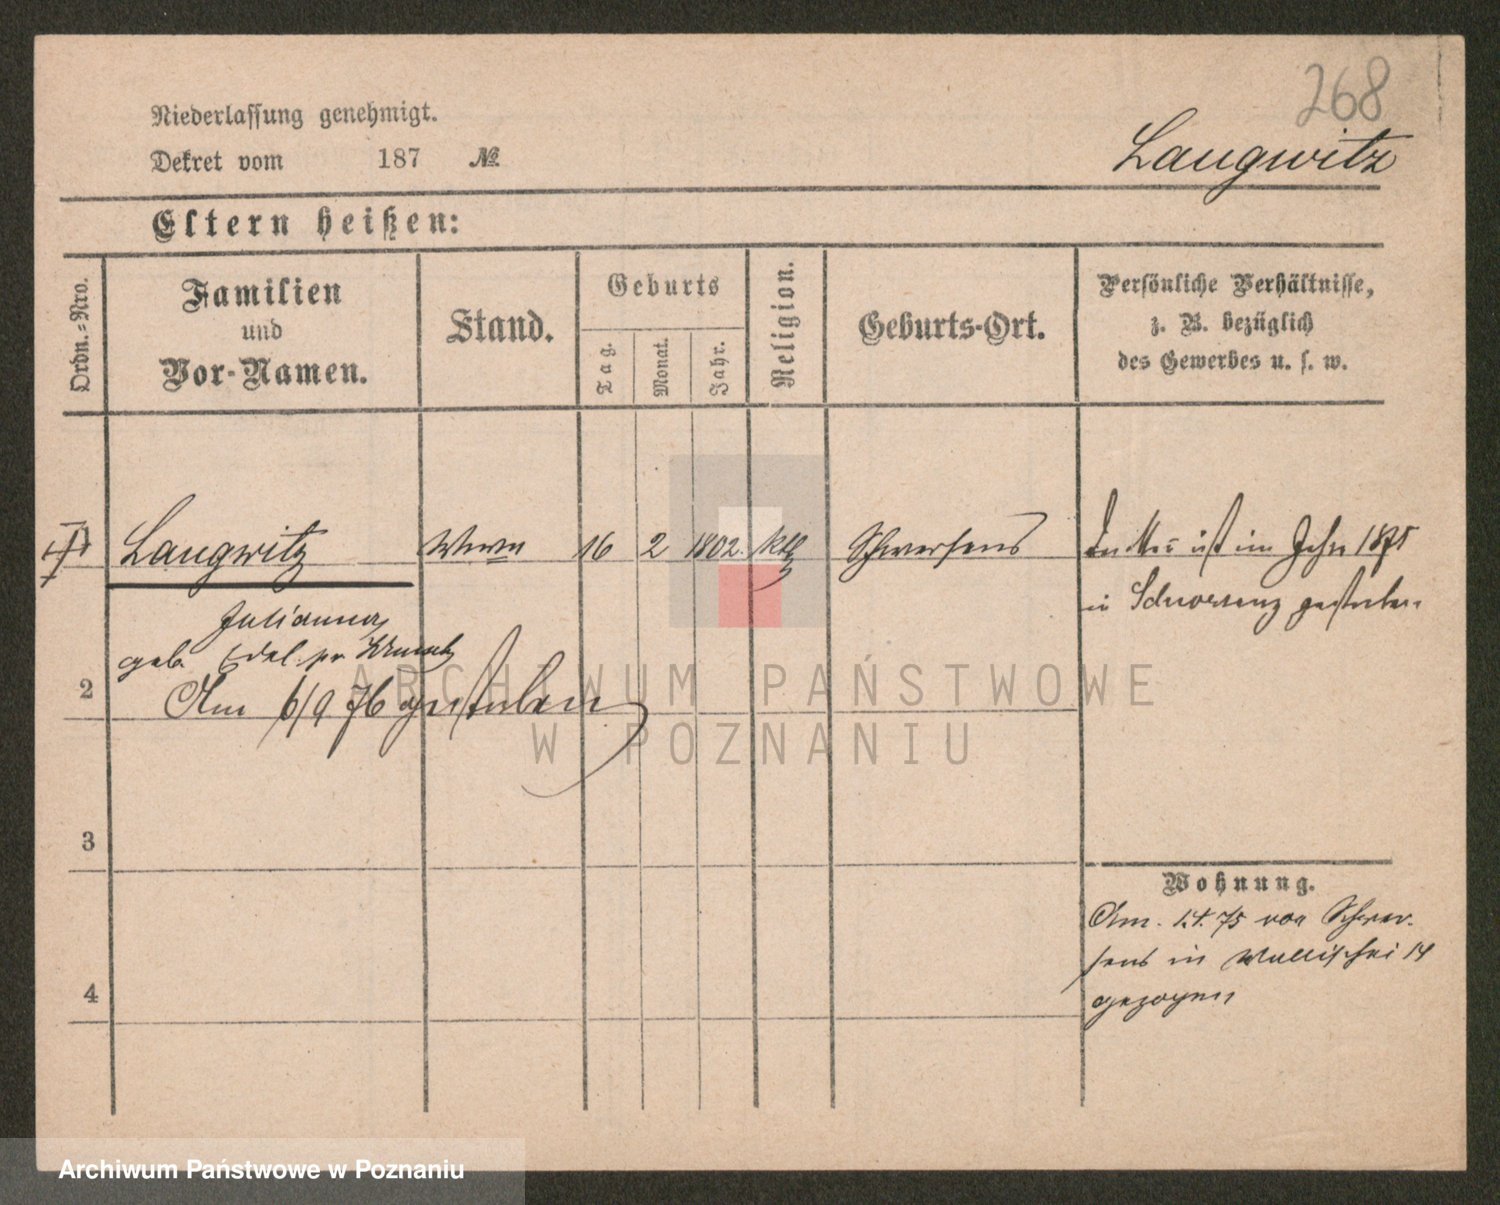 268
Niederlassung genehmigt.
Dekret vom 187 №
Langwitz
Eltern heißen:
Ordn.-Nro.
Familien
und
Vor-Namen.
Stand.
Geburts
Tag.
Monat.
Jahr.
Religion.
Geburts-Ort.
Persönliche Verhältnisse,
z. B. bezüglich
des Gewerbes u. s. w.
Langwitz Wwe 16 2 1802. kth Schwersens
ist im Jahre 1875
in Schwersenz gestorben
Julianna
geb.
2
Am 6/9 76 gestorben
ARCHIWUM PAŃSTWOWE
W POZNANIU
3
Wohnung.
Am. 1.4.75 von Schwer-
sens in Wallischei 14
gezogen
4
Archiwum Państwowe w Poznaniu